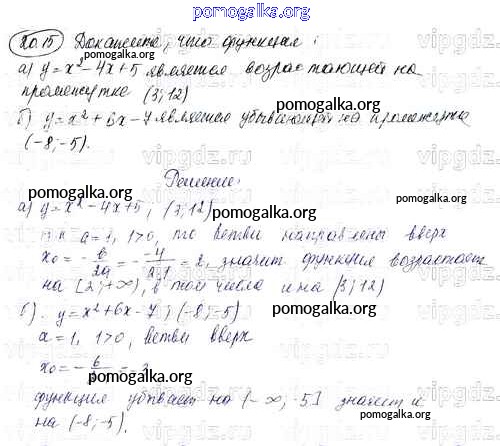 pomogalka.org
20.15 Докажите, что функция:
а) y = x² - 4x + 5 является возрастающей на
промежутке (3; 12)
pomogalka.org
б) y = x² + 6x - 7 является убывающей на промежутке
(-8; -5).
Решение:
pomogalka.org
pomogalka.org
а) y = x² - 4x + 5, (3; 12)
т.к a = 1, 1>0, то ветви направлены вверх
x₀ = - b/2a = - -4/2·1 = 2, значит функция возрастает
на [2; +∞), в том числе и на (3; 12)
б). y = x² + 6x - 7; (-8; -5)
pomogalka.org
a = 1, 1>0, ветви вверх
x₀ = - 6/ = -3
pomogalka.org
функция убывает на (-∞; 5] значит и
на (-8; -5).
pomogalka.org
pomogalka.org